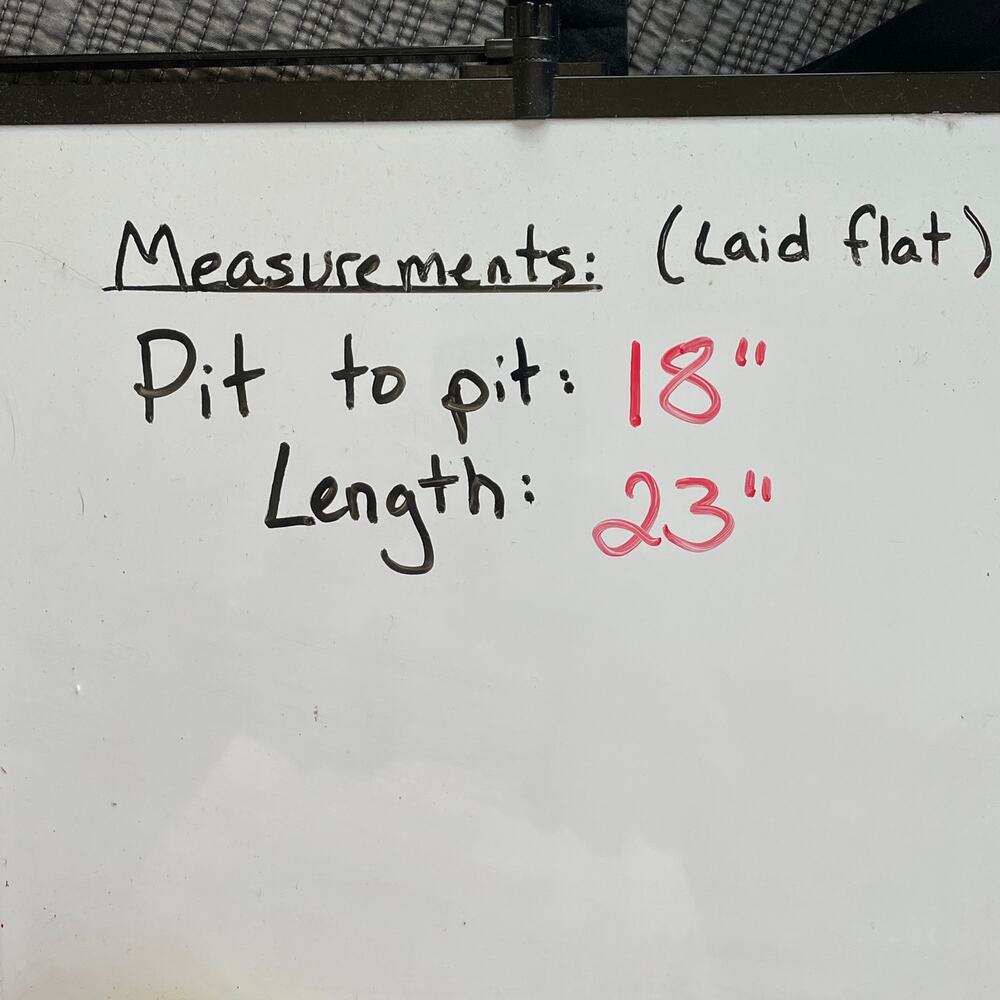 Measurements: (Laid flat)
Pit to pit: 18"
Length: 23"